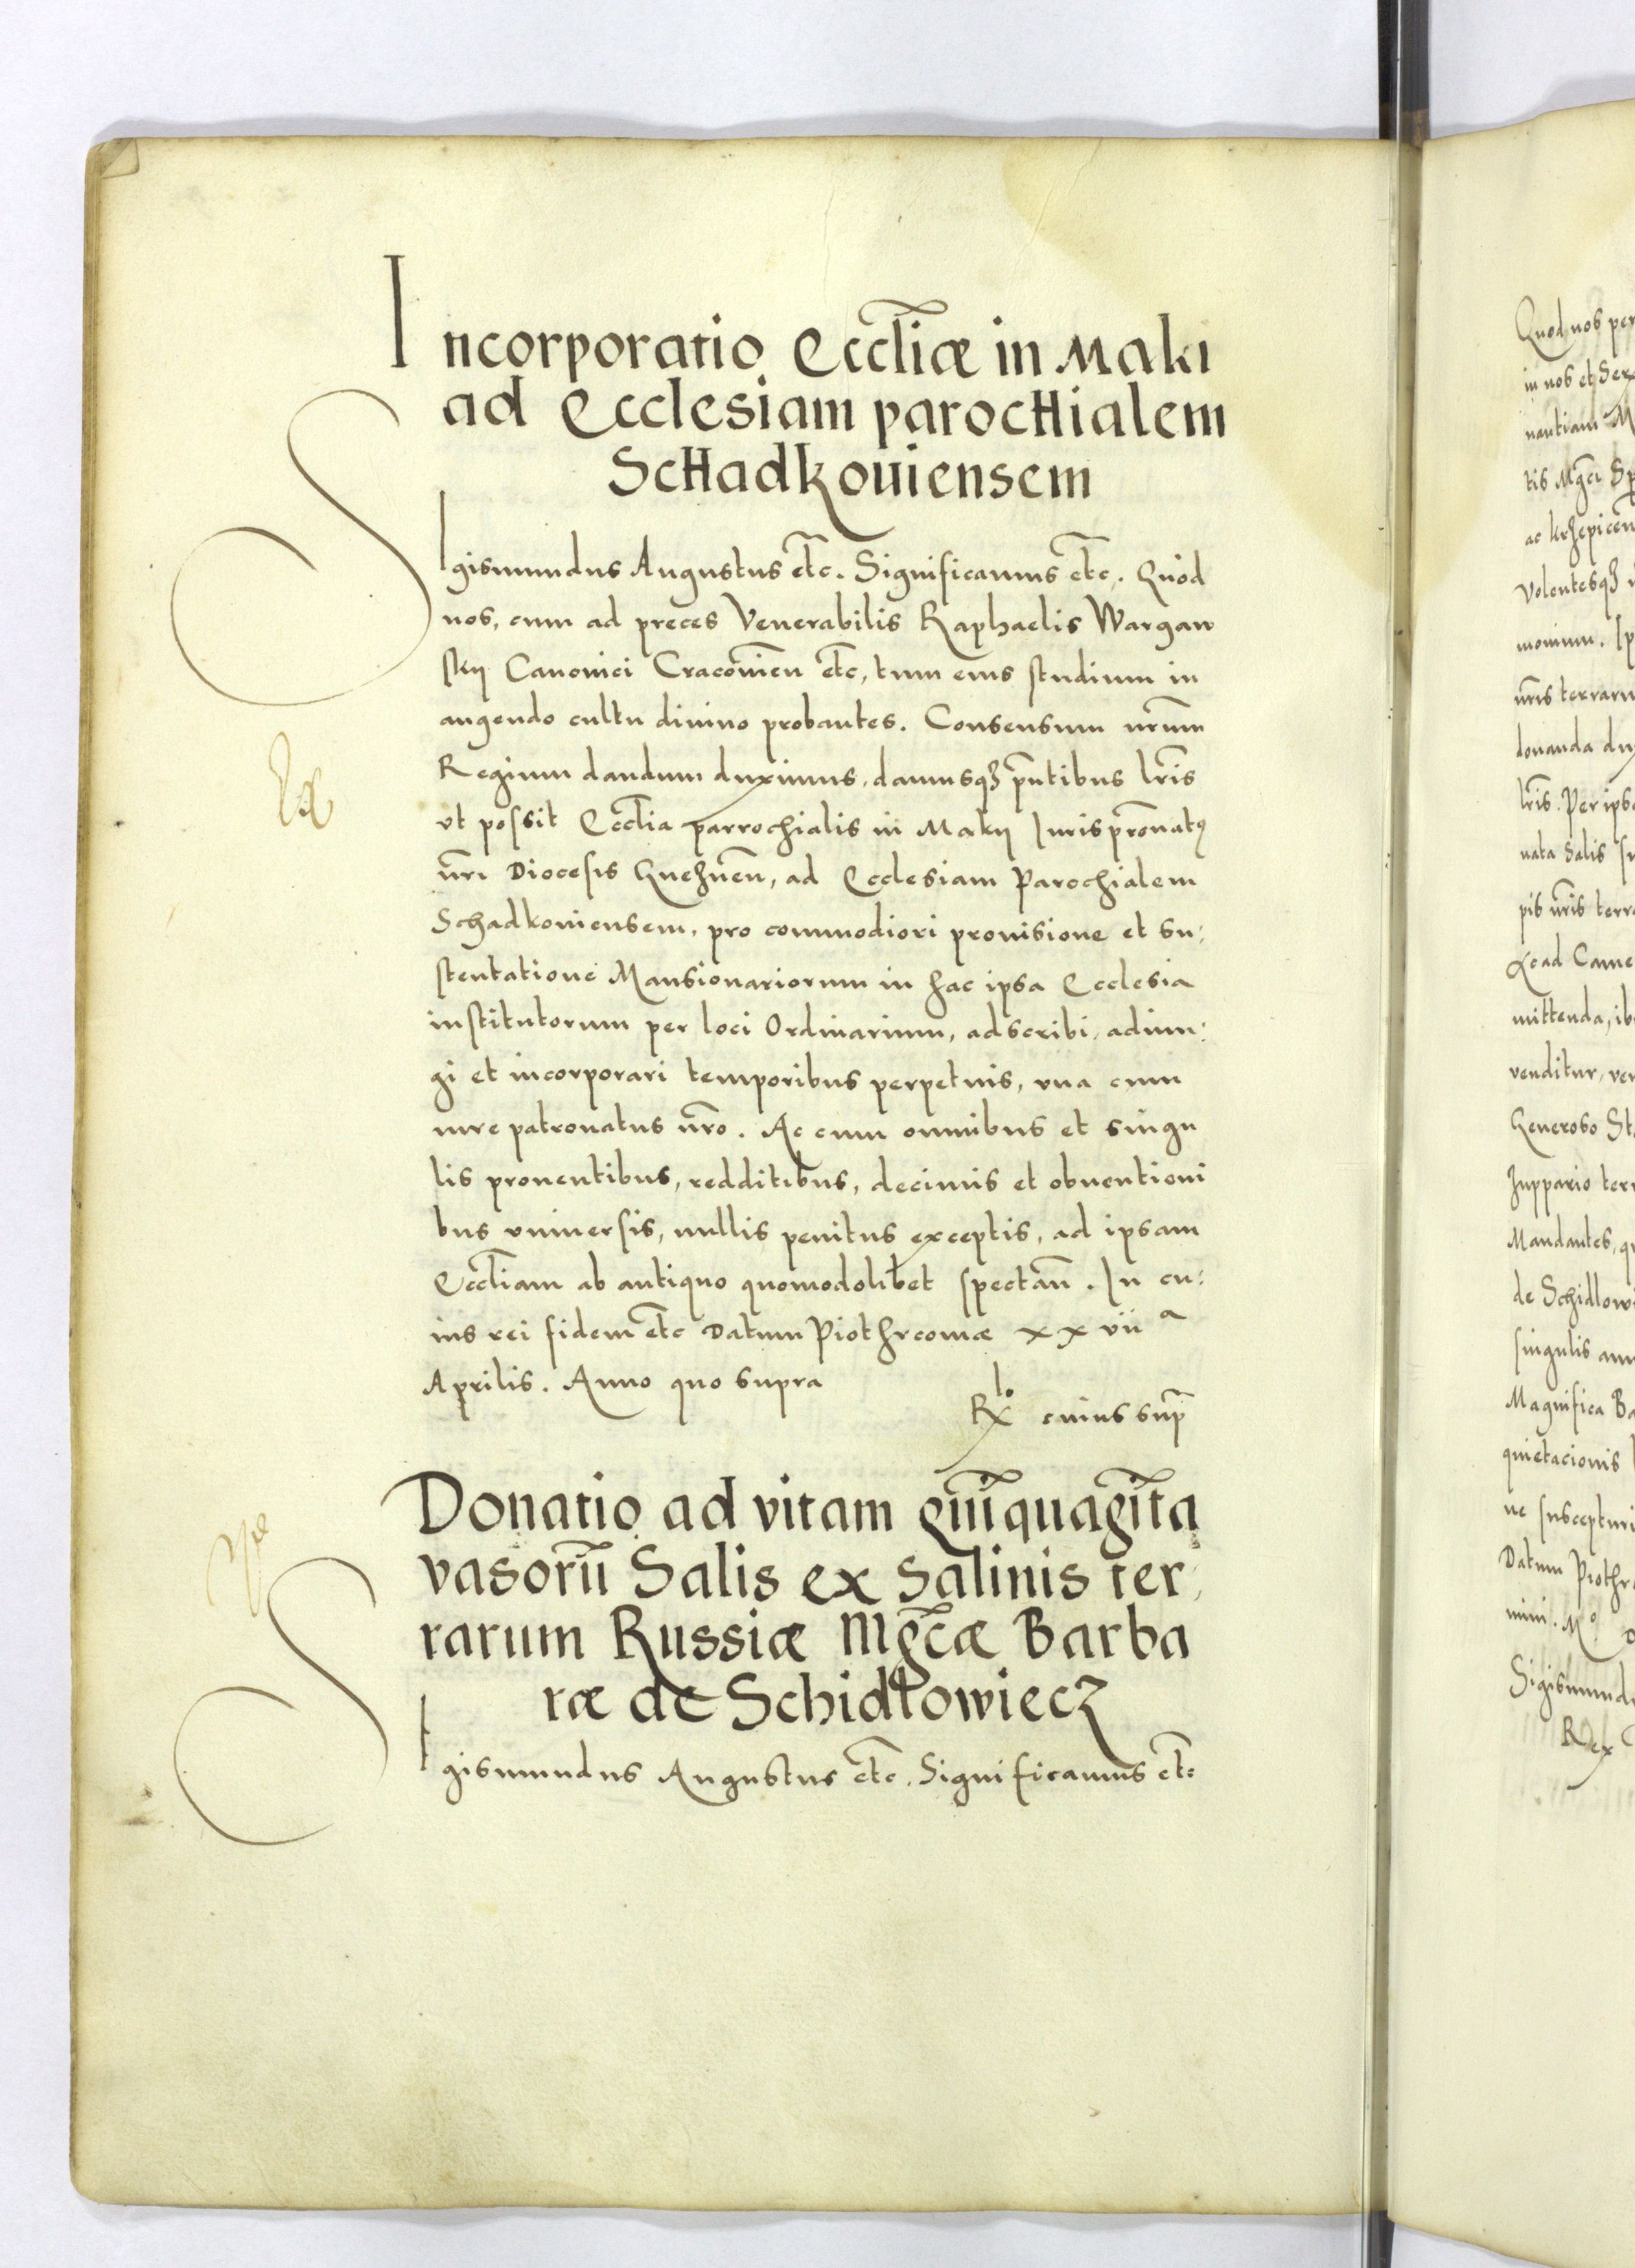 Incorporatio Eccl̃iæ in Maki
ad Ecclesiam parochialem
Schadkouiensem
Sigismundus Augustus etc̃. Significamus etc̃. Quod
nos, cum ad preces Venerabilis Raphaelis Wargaw
skij Canonici Cracouieñ etc̃, tum eius studium in
augendo cultu diuino probantes. Consensum nr̃um
Regium dandum duximus, damusqꝫ pñtibus lr̃is
vt possit Eccl̃ia parrochialis in Makij Iurispr̃onatꝰ
nr̃i Diocesis Gneznen̄, ad Ecclesiam Parochialem
Schadkouiensem, pro commodiori prouisione et su:
stentatione Mansionariorum in hac ipsa Ecclesia
institutorum per loci Ordinarium, adscribi, adiun:
gi et incorporari temporibus perpetuis, vna cum
iure patronatus nr̃o. Ac cum omnibus et singu
lis prouentibus, redditibus, decimis et obuentioni
bus vniuersis, nullis penitus exceptis, ad ipsam
Eccl̃iam ab antiquo quomodolibet spectañ. In cu:
ius rei fidem etc̃ Datum Piothrcouiæ xxvii ᵃ
Aprilis. Anno quo supra
Rˡᵒ cuius sup̃
Donatio ad vitam quĩquagĩta
vasorũ Salis ex Salinis ter
rarum Russiæ Mgc̃æ Barba
ræ de Schidłowiecz
Sigismundus Augustus etc̃. Significamus etc̃
Quod nos per
in nos et Ser
nantiam M
tis Mgc̃i Sp
ac krzepicen
Volentesqꝫ
monium. Ip
nr̃is terraru
donanda dux
lr̃is. Per ips
nata Salis su
pis nr̃is terra
ad Came
mittenda, ib
venditur, ver
Generoso St
Zuppario terr
Mandantes, q
de Schidlowi
singulis ann
Magnifica Ba
quietacionis
ne suscepturi
Datum Piothr
mini. Mº D
Sigismundu
Rex